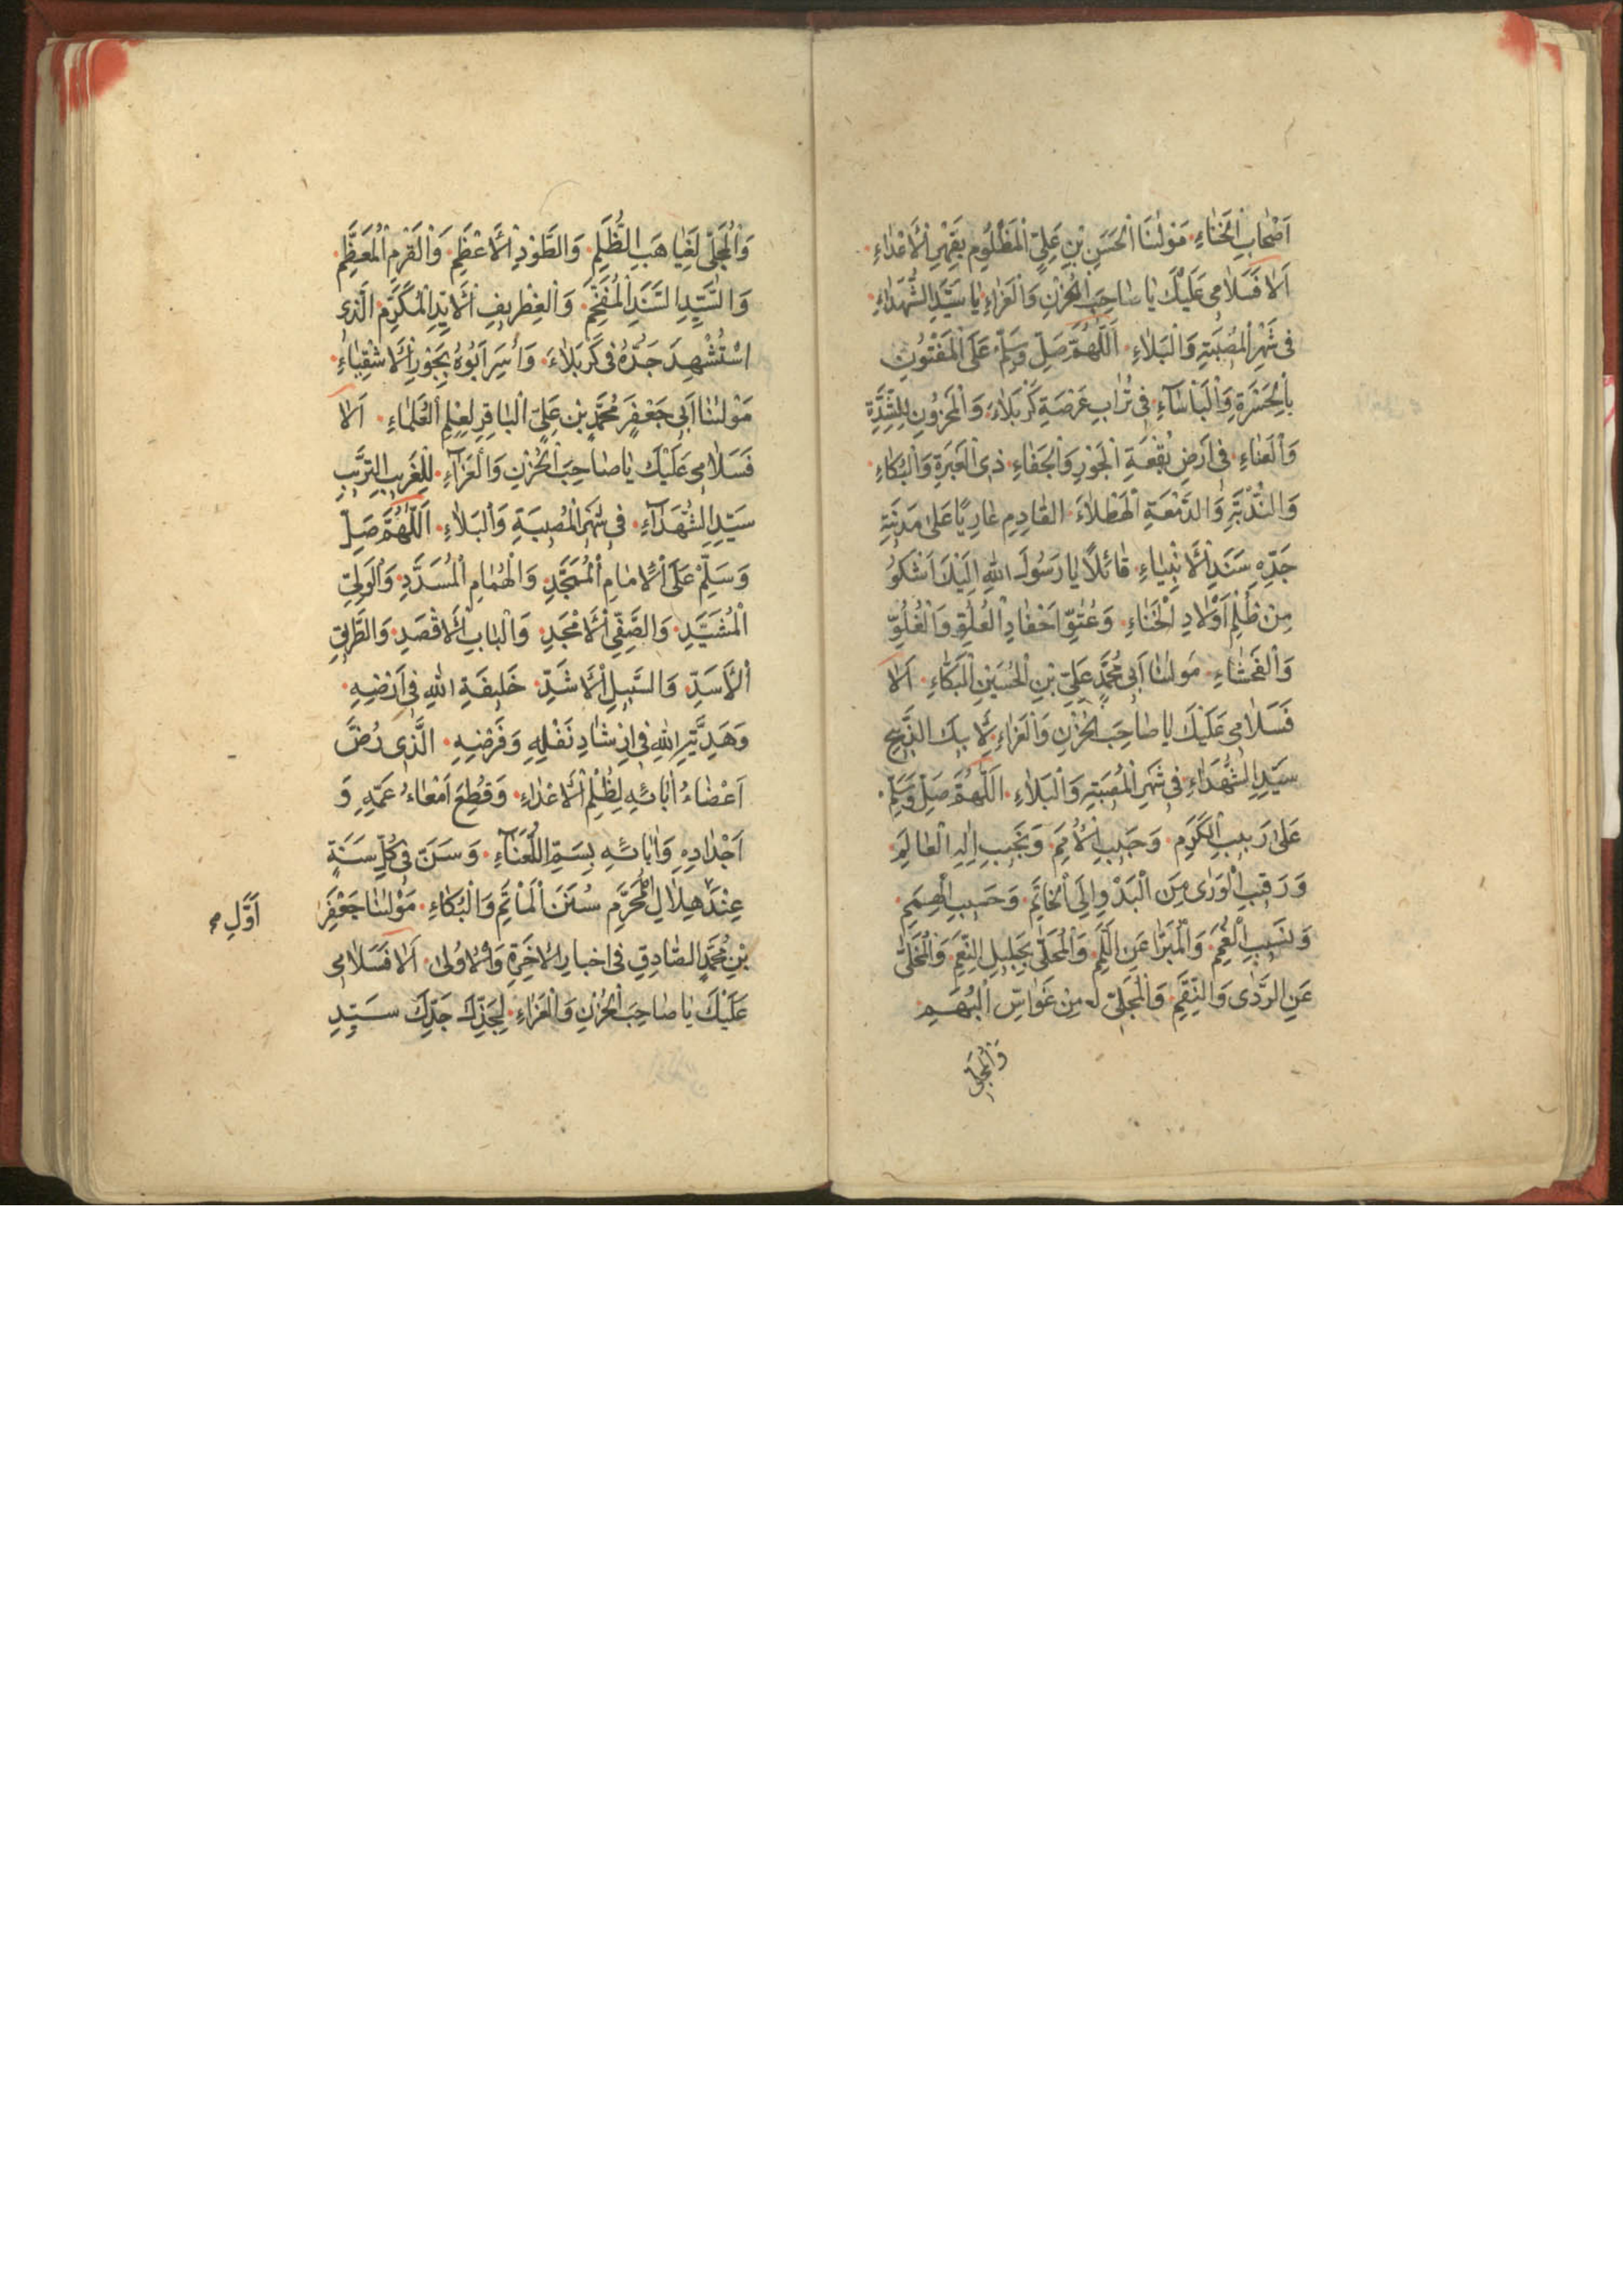 اَصْحٰابِ الْخَنٰاءِ مَوْلٰنَا الْحَسَنِ بْنِ عَلِيٍّ الْمَظْلُومِ بِقَهْرِ الْاَعْدٰاءِ
اَلٰا فَسَلٰامِى عَلَيْكَ يٰا صٰاحِبَ الْحُزْنِ وَالْعَزٰاءِ يٰا سَيِّدِ الشُّهَدٰاءِ
فِى شَهْرِ الْمُصِيبَةِ وَالْبَلٰاءِ اَللّٰهُمَّ صَلِّ وَسَلِّمْ عَلَى الْمَفْتُونِ
بِالْحَسْرَةِ وَالْبَاْسٰآءِ فِى تُرٰابِ عَرْصَةِ كَرْبَلٰاءَ وَالْمَحْزُونِ لِلشِّدَّةِ
وَالْعَنٰاءِ فِى اَرْضِ بُقْعَةِ الْجَوْرِ وَالْجَفٰاءِ ذِى الْعَبْرَةِ وَالْبُكٰاءِ
وَالنُّدْبَةِ وَالدَّمْعَةِ الْهَطْلٰاءِ الْقٰادِمِ عٰارِيًا عَلٰى مَدِينَةِ
جَدِّهِ سَنَدِ الْاَنْبِيٰاءِ قٰائِلًا يٰا رَسُولَ اللّٰهِ اِلَيْكَ اَشْكُوُ
مِنْ ظُلْمِ اَوْلٰادِ الْخَنٰاءِ وَعُتُوِّ اَحْفٰادِ الْعُلُوِّ وَالْغُلُوِّ
وَالْفَحْشٰاءِ مَوْلٰنٰا اَبِى مُحَمَّدٍ عَلِيِّ بْنِ الْحُسَيْنِ الْبَكّٰاءِ اَلٰا
فَسَلٰامِى عَلَيْكَ يٰا صٰاحِبَ الْحُزْنِ وَالْعَزٰاءِ لِاَبِيكَ الذَّبِيحِ
سَيِّدِ الشُّهَدٰاءِ فِى شَهْرِ الْمُصِيبَةِ وَالْبَلٰاءِ اَللّٰهُمَّ صَلِّ وَسَلِّمْ
عَلٰى رَبِيبِ الْكَرَمِ وَحَبِيبِ الْاُمَمِ وَنَجِيبِ اِلٰهِ الْعٰالَمِ
وَرَقِيبِ الْوَرٰى مِنَ الْبَدْوِ اِلَى الْخٰاتَمِ وَحَسِيبِ الْهِمَمِ
وَنَسِيبِ وَالْمُبَرّٰا عَنِ اللَّمَمِ وَالْمُحَلّٰى بِجَلِيلِ النِّعَمِ وَالْمُخَلّٰى
عَنِ الرَّدٰى وَالنِّقَمِ وَالْمُجَلّٰى لَهُ مِنْ غَوٰاشِ الْبُهَمِ
وَالْمُجَلِّى
وَالْمُجَلِّى لِغَيٰاهِبِ الظُّلَمِ وَالطَّوْدِ الْاَعْظَمِ وَالْقَرْمِ الْمُعَظَّمِ
وَالسَّيِّدِ السَّنَدِ الْمُفَخَّمِ وَالْغِطْرِيفِ الْاَيِّدِ الْمُكَرَّمِ الَّذِى
اسْتُشْهِدَ جَدُّهُ فِى كَرْبَلٰاءَ وَاُسِرَ اَبُوهُ بِجَوْرِ الْاَشْقِيٰاءِ
مَوْلٰنٰا اَبِى جَعْفَرٍ مُحَمَّدِ بْنِ عَلِيٍّ الْبٰاقِرِ لِعِلْمِ الْعُلَمٰاءِ اَلٰا
فَسَلٰامِى عَلَيْكَ يٰا صٰاحِبَ الْحُزْنِ وَالْعَزٰآءِ لِلْغَرِيبِ التَّرِيبِ
سَيِّدِ الشُّهَدٰآءِ فِى شَهْرِ الْمُصِيبَةِ وَالْبَلٰاءِ اَللّٰهُمَّ صَلِّ
وَسَلِّمْ عَلَى الْاِمٰامِ الْمُمَجَّدِ وَالْهُمٰامِ الْمُسَدَّدِ وَالْوَلِيِّ
الْمُشَيَّدِ وَالصَّفِيِّ الْاَمْجَدِ وَالْبٰابِ الْاَقْصَدِ وَالطَّرِيقِ
الْاَسَدِّ وَالسَّبِيلِ الْاَشَدِّ خَلِيفَةِ اللّٰهِ فِى اَرْضِهِ
وَهَدِيَّةِ اللّٰهِ فِى اِرْشٰادِ نَفْلِهِ وَفَرْضِهِ الَّذِى رُضَّ
اَعْضٰاءُ اٰبٰائِهِ لِظُلْمِ الْاَعْدٰاءِ وَقُطِعَ اَمْعٰاءُ عَمِّهِ وَ
اَجْدٰادِهِ وَاٰبٰائِهِ بِسَمِّ اللُّعَنٰآءِ وَسَنَّ فِى كُلِّ سَنَةٍ
عِنْدَ هِلٰالِ الْمُحَرَّمِ سُنَنَ الْمَاْتَمِ وَالْبُكٰاءِ مَوْلٰنٰا جَعْفَرِ
اَوَّلِ
بْنِ مُحَمَّدٍ الصّٰادِقِ فِى اخبار الْاٰخِرَةِ وَالْاُولٰى اَلٰا فَسَلٰامِى
عَلَيْكَ يٰا صٰاحِبَ الْحُزْنِ وَالْعَزٰاءِ لِجَدِّكَ جَدِّكَ سَيِّدِ